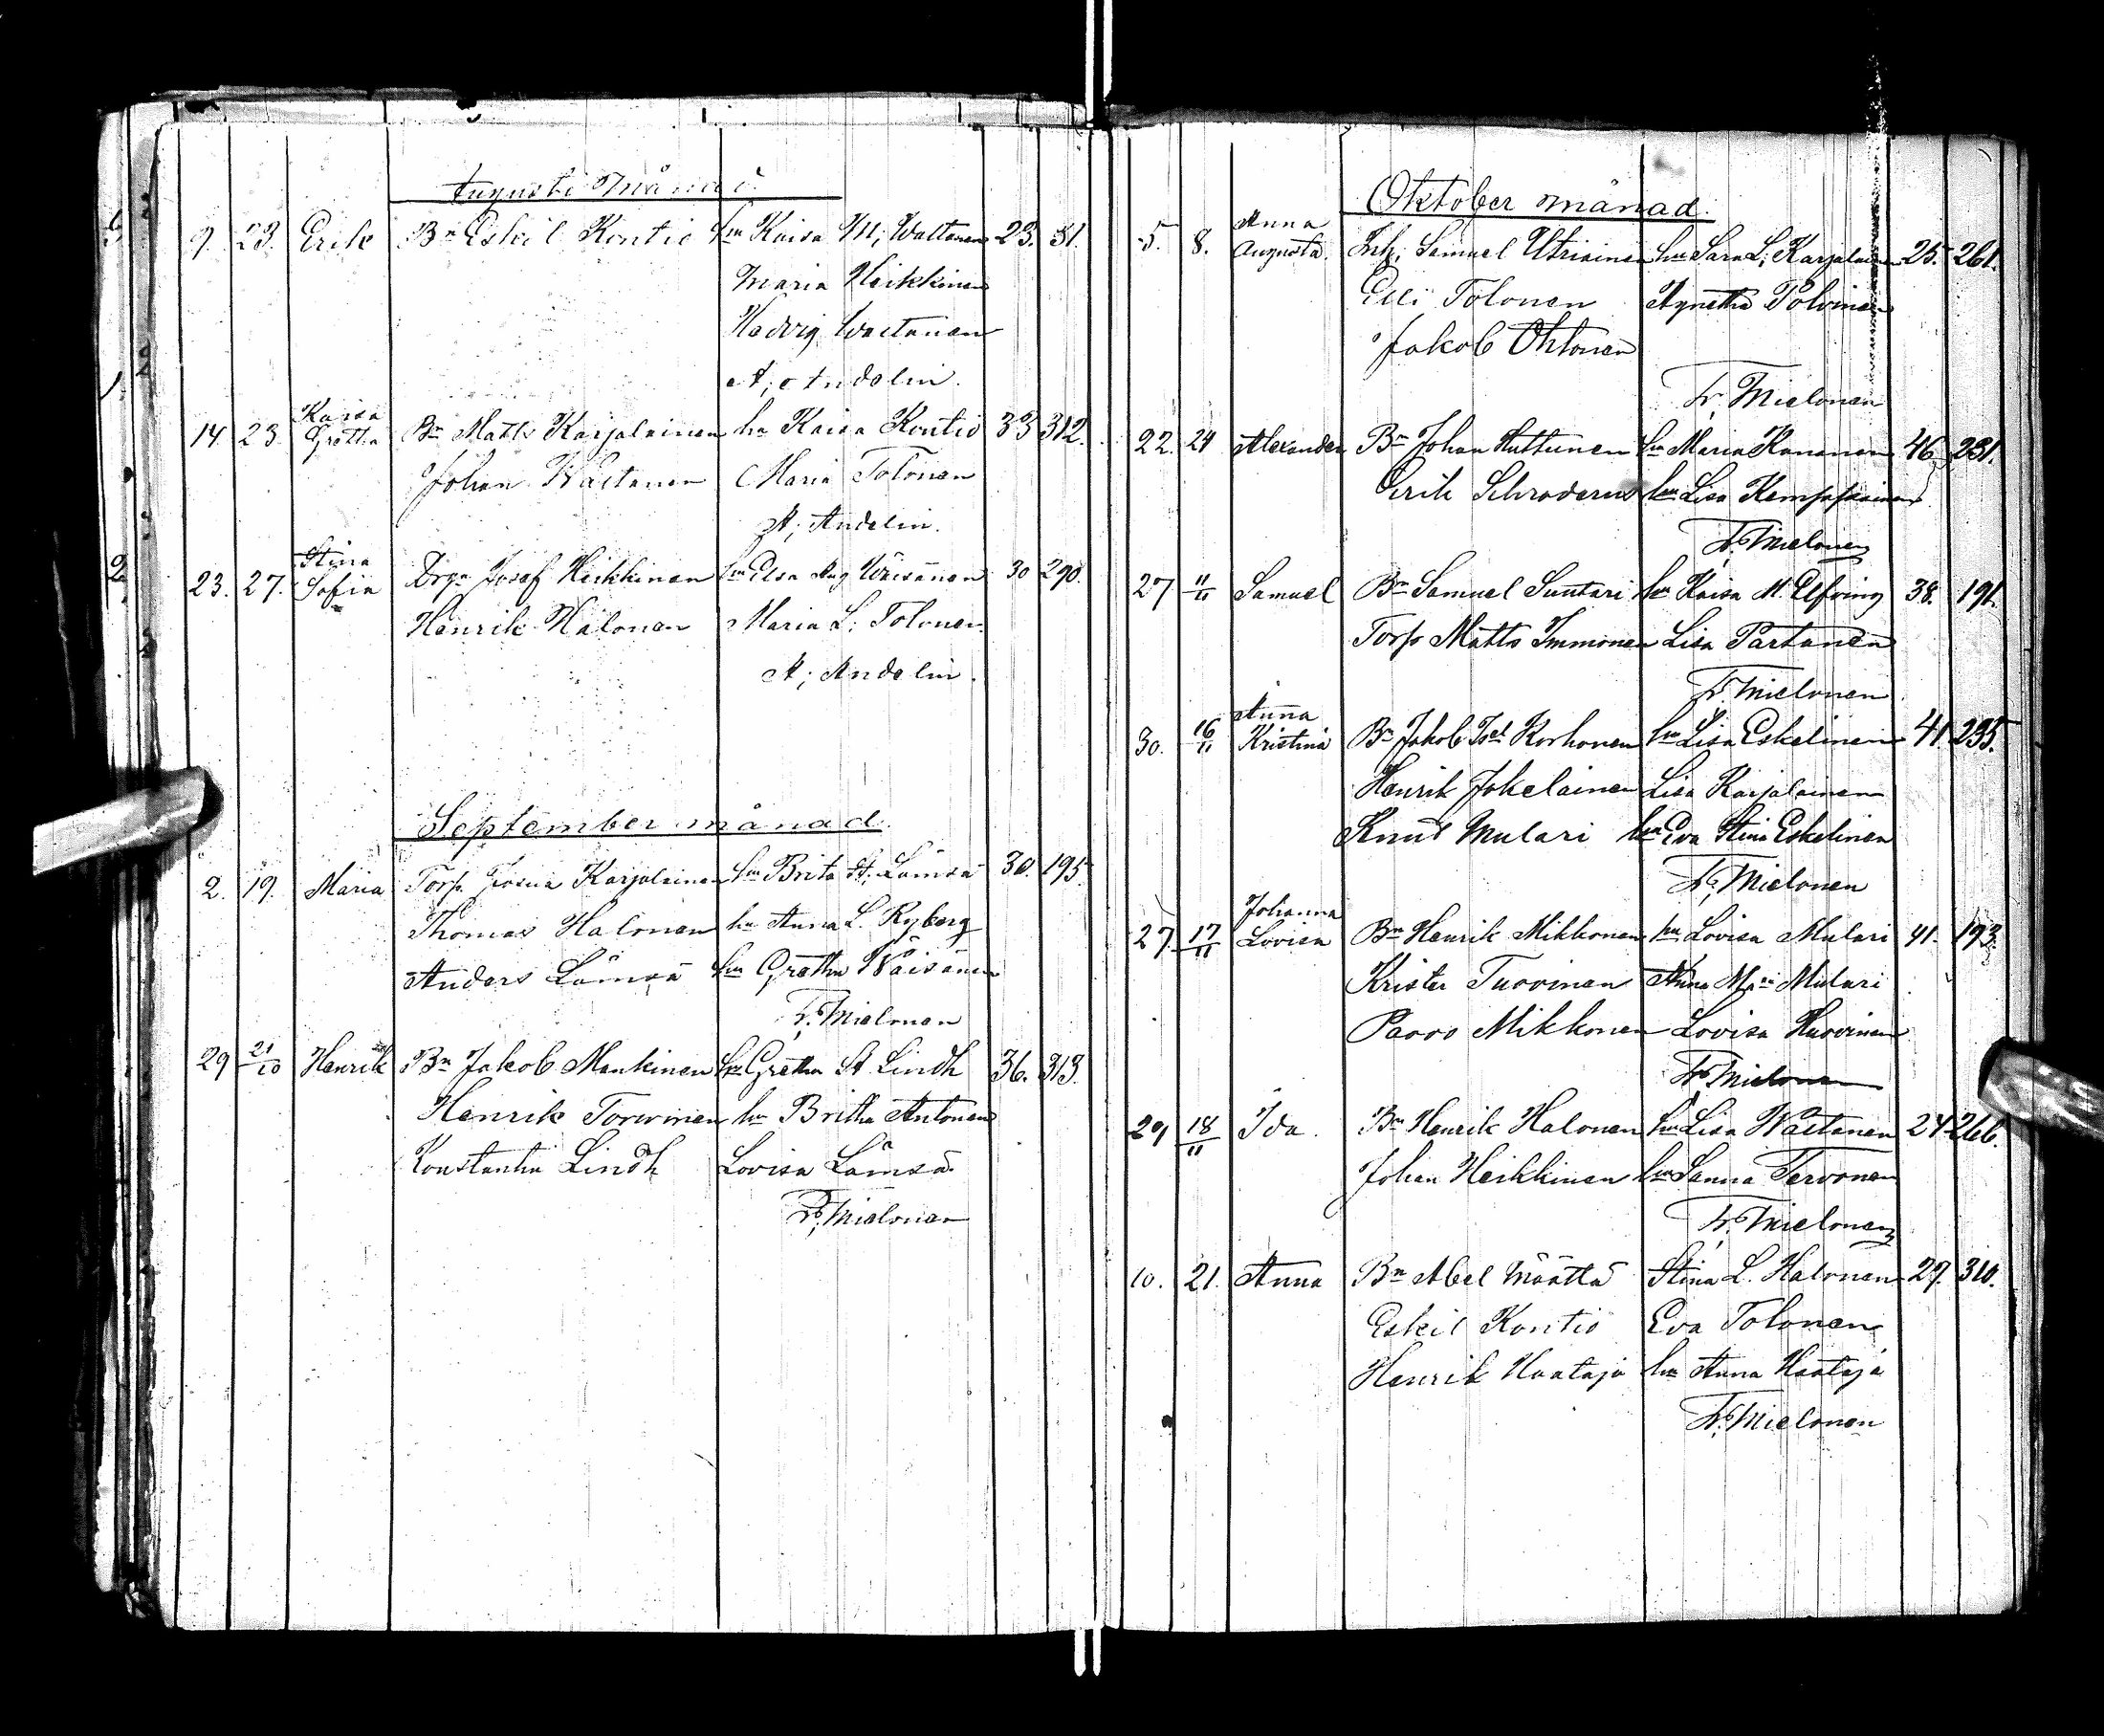 Augusti Månad.
9. 23. Erik Bn Eskil Kontio hu Kaisa M; Waltanen 23. 31.
Maria Heikkinen
Hedvig Waltanen
A; Andelin.
Kaisa
14 23. Gretha Bn Matts Karjalainen hu Kaisa Kontio 33 312.
Johan Waltanen Maria Tolonen
A; Andelin.
Stina
23. 27. Sofia Drgn Josef Heikkinen hu Elsa Aug Wäisänen 30 290.
Henrik Halonen Maria L; Tolonen
A; Andelin.
September månad.
2. 19. Maria Torp Josua Karjalainen hu Brita St. Lämsä 30. 195
Thomas Halonen hu Anna L. Ryberg
Anders Lämsä hu Gretha Wäisänen
Fr. Mielonen
29 21/10 Henrik Bn Jakob Mankinen hu Gretha St Lindh 36. 313.
Henrik Torvinen hu Britha Antonen
Konstantin Lindh Lovisa Lämsä
Fr; Mielonen
Oktober månad.
Anna
5. 8. Augusta. Inh; Samuel Utriainen hu Sara L; Karjalainen 25. 261.
Elli Tolonen Agnetha Polvinen
Jakob Ohtonen
Fr; Mielonen
22. 24 Alexander Bn Johan Huttunen hu Maria Kananen 46 231.
Erik Schroderus hu Lisa Kemppainen
Fr; Mielonen
27 11/11 Samuel Bn Samuel Suutari hu Kaisa M. Elfving 38. 191.
Torp Matts Immonen Lisa Partanen
Fr; Mielonen
Anna
30. 16/11 Kristina Bn Jakob Korhonen hu Lisa Eskelinen 41 235.
Henrik Jokelainen Lisa Karjalainen
Knut Mulari hu Eva Stina Eskelinen
Fr; Mielonen
Johanna
27. 17/11 Lovisa Bn Henrik Mikkonen hu Lovisa Mulari 41. 193.
Krister Tuovinen Anna Mulari
Paavo Mikkonen Lovisa Huovinen
Fr; Mielonen
29 18/11 Ida. Bn Henrik Halonen hu Lisa Waltanen 24 266.
Johan Heikkinen hu Sanna Tervonen
Fr; Mielonen
10. 21. Anna Bn Abel Määttä Stina L. Halonen 29. 310.
Eskil Kontio Eva Tolonen
Henrik Haataja hu Anna Haataja
Fr; Mielonen